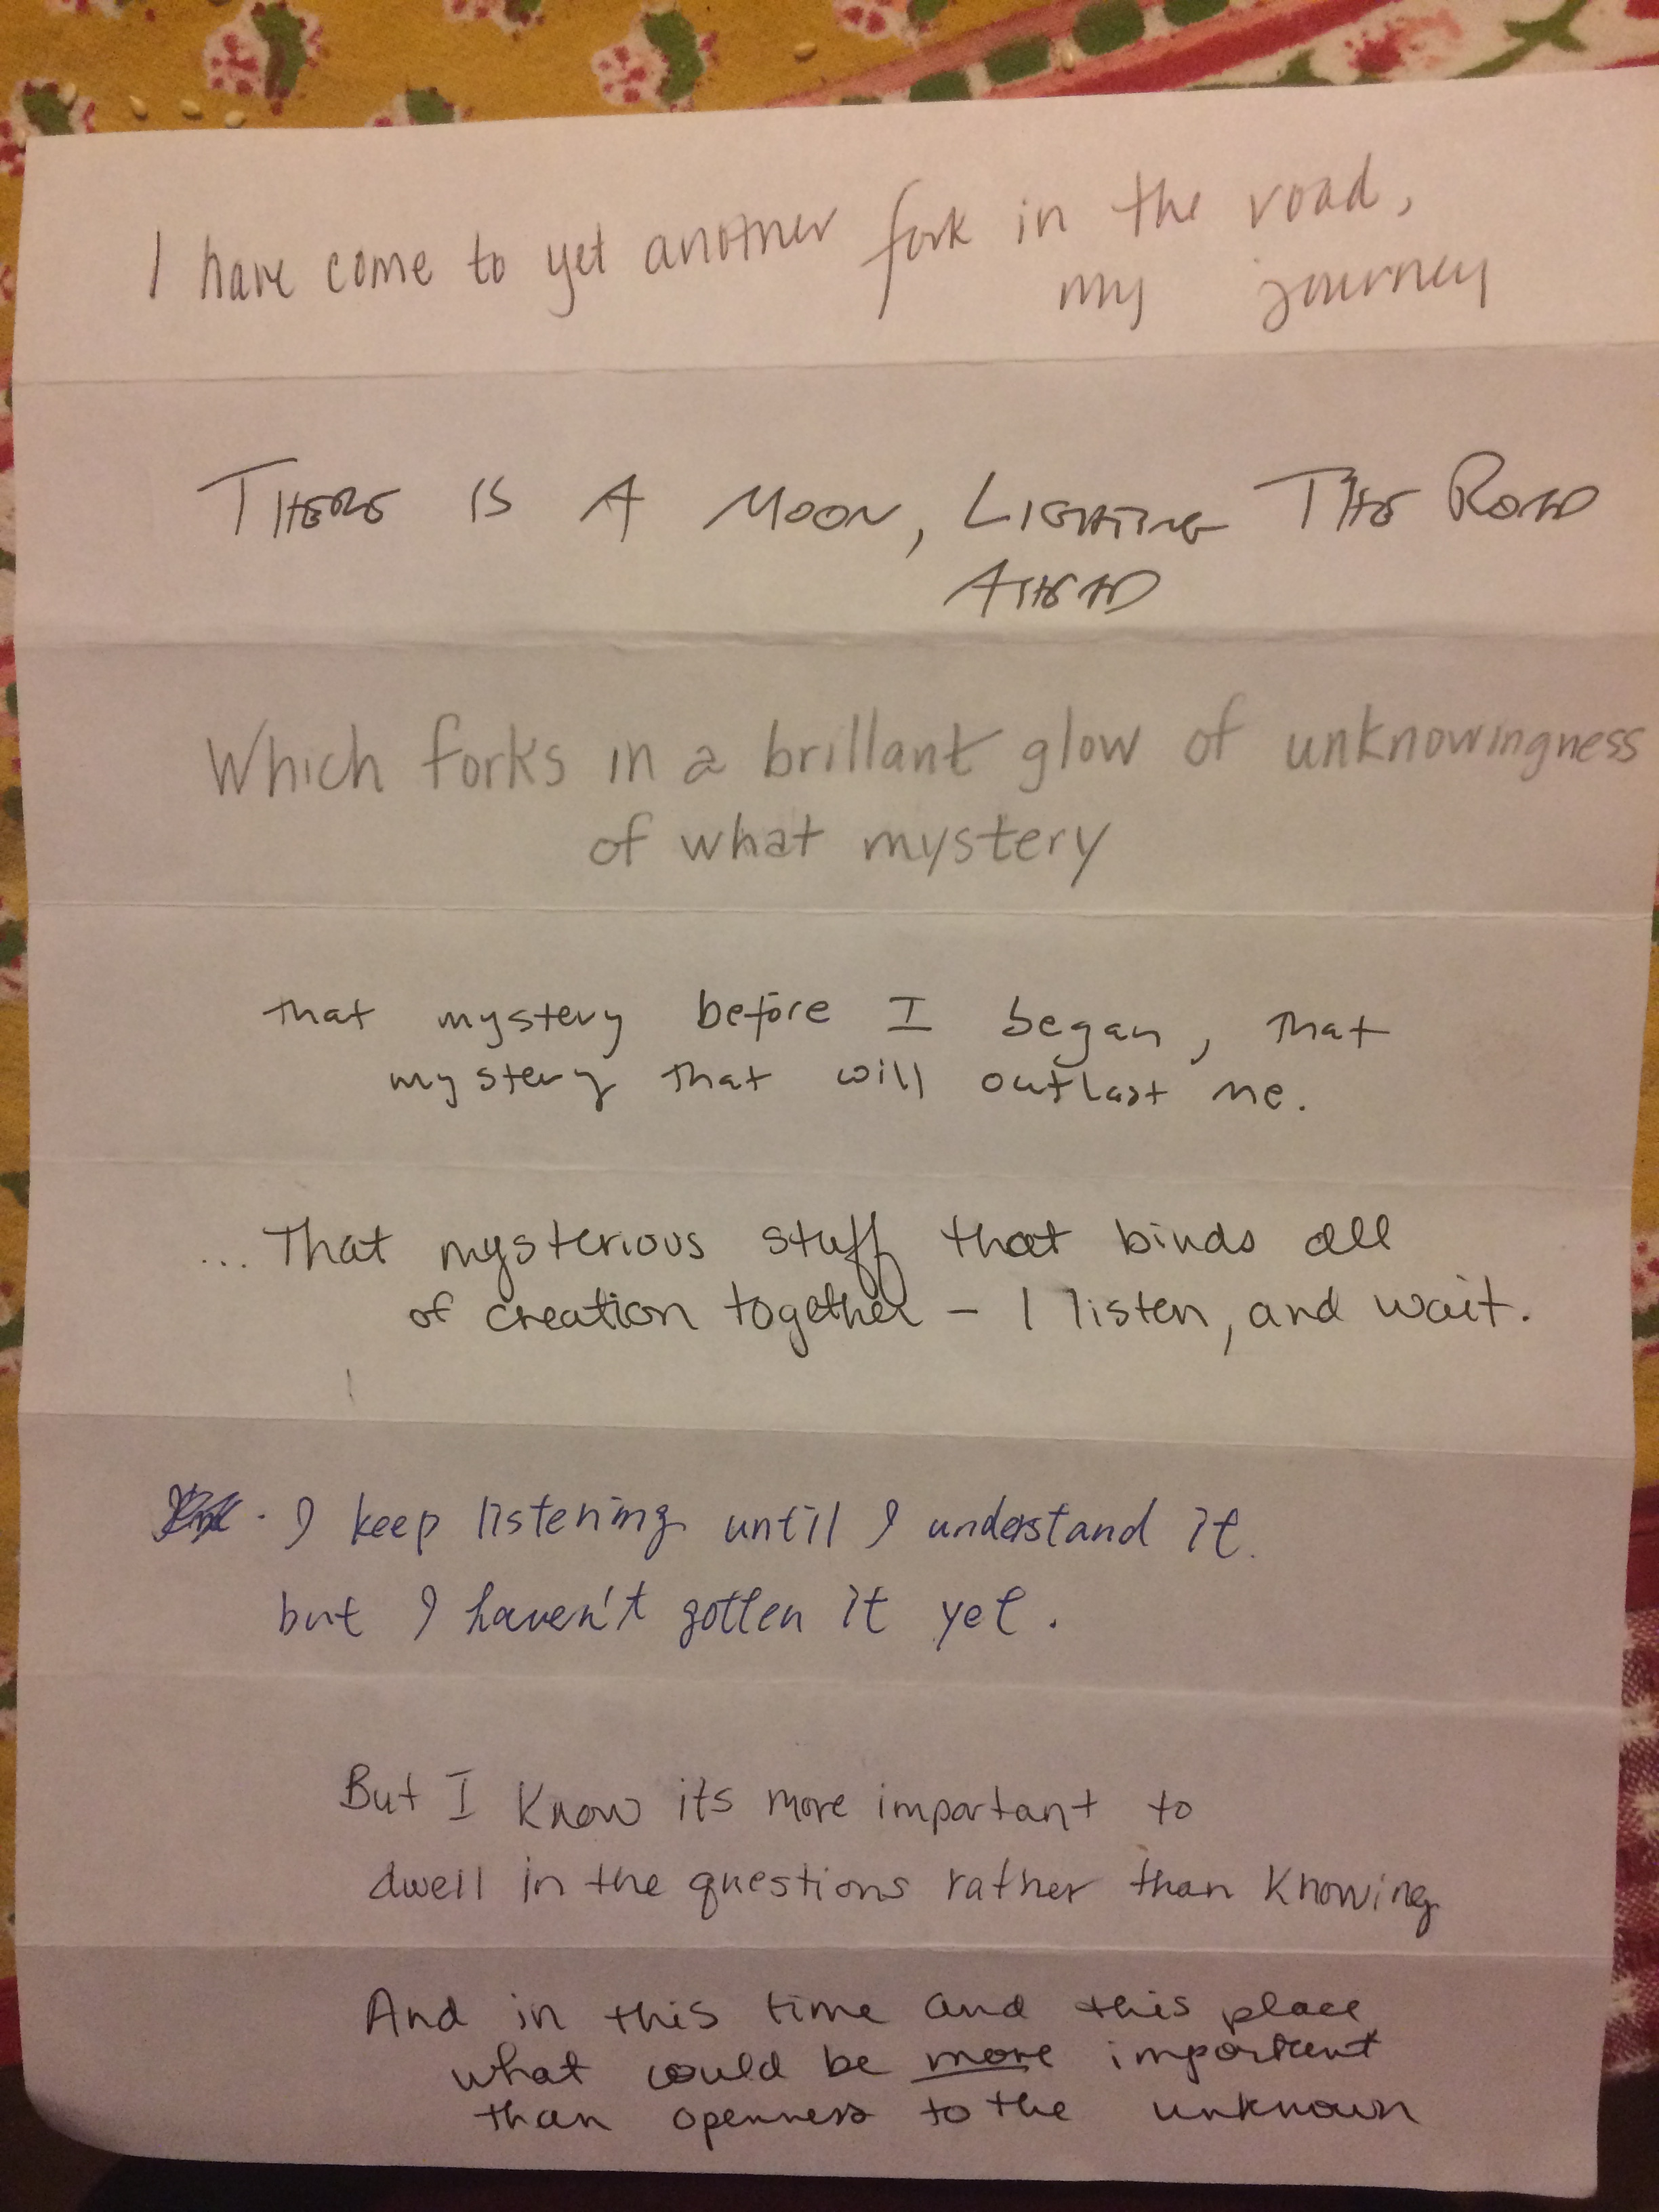 I have come to yet another fork in the road,
my journey
THERE IS A MOON, LIGHTING THE ROAD
AHEAD
Which forks in a brillant glow of unknowingness
of what mystery
that mystery before I began, that
mystery that will outlast me.
... That mysterious stuff that binds all
of creation together – I listen, and wait.
. I keep listening until I understand it.
but I haven't gotten it yet.
But I know its more important to
dwell in the questions rather than knowing
And in this time and this place
what could be more important
than openness to the unknown